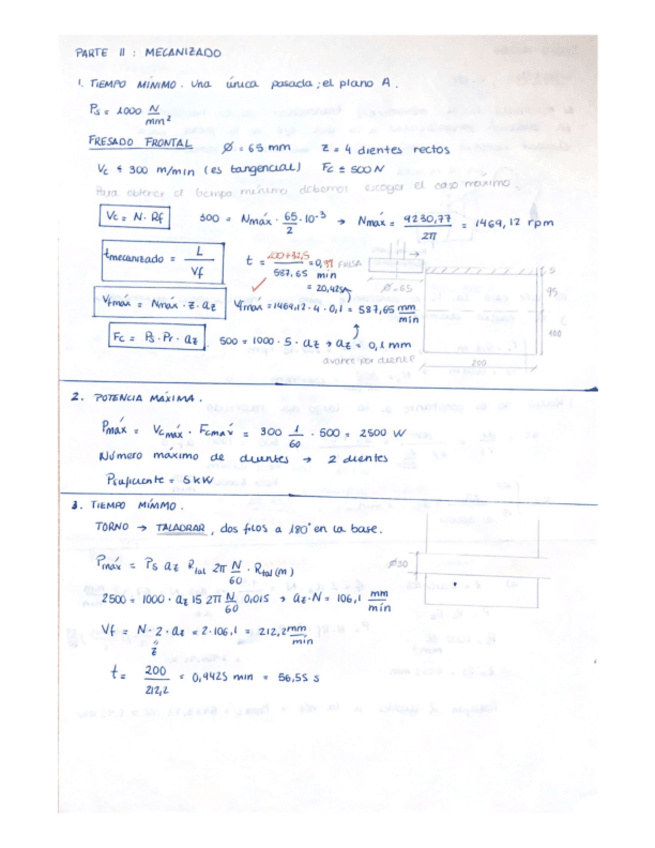 PARTE II : MECANIZADO
1. TIEMPO MÍNIMO. Una única pasada; el plano A.
Ps = 1000 N/mm²
FRESADO FRONTAL Ø = 65 mm z = 4 dientes rectos
Vc ≤ 300 m/min (es tangencial) Fc ≤ 500 N
Para obtener el tiempo mínimo debemos escoger el caso máximo.
Vc = N · Rf 300 = Nmáx · 65/2 · 10⁻³ → Nmáx = 9230,77/2π = 1469,12 rpm
tmecanizado = L/Vf t = 200+32,5/587,65 = 0,39 min = 20,42s
Vfmáx = Nmáx · z · az Vfmáx = 1469,12 · 4 · 0,1 = 587,65 mm/min
Fc = Ps · Pr · az 500 = 1000 · 5 · az → az = 0,1 mm
avance por diente
Ø=65
5
95
100
200
2. POTENCIA MÁXIMA.
Pmáx = Vcmáx · Fcmáx = 300 1/60 · 500 = 2500 W
Número máximo de dientes → 2 dientes
Psuficiente = 5 kW
3. TIEMPO MÍNIMO.
TORNO → TALADRAR, dos filos a 180° en la base.
Pmáx = Ps az Rtal 2π N/60 · Rtal (m)
Ø30
2500 = 1000 · az 15 2π N/60 0,015 → az·N = 106,1 mm/min
Vf = N · 2 · az = 2 · 106,1 = 212,2 mm/min
z
t = 200/212,2 = 0,9425 min = 56,55 s